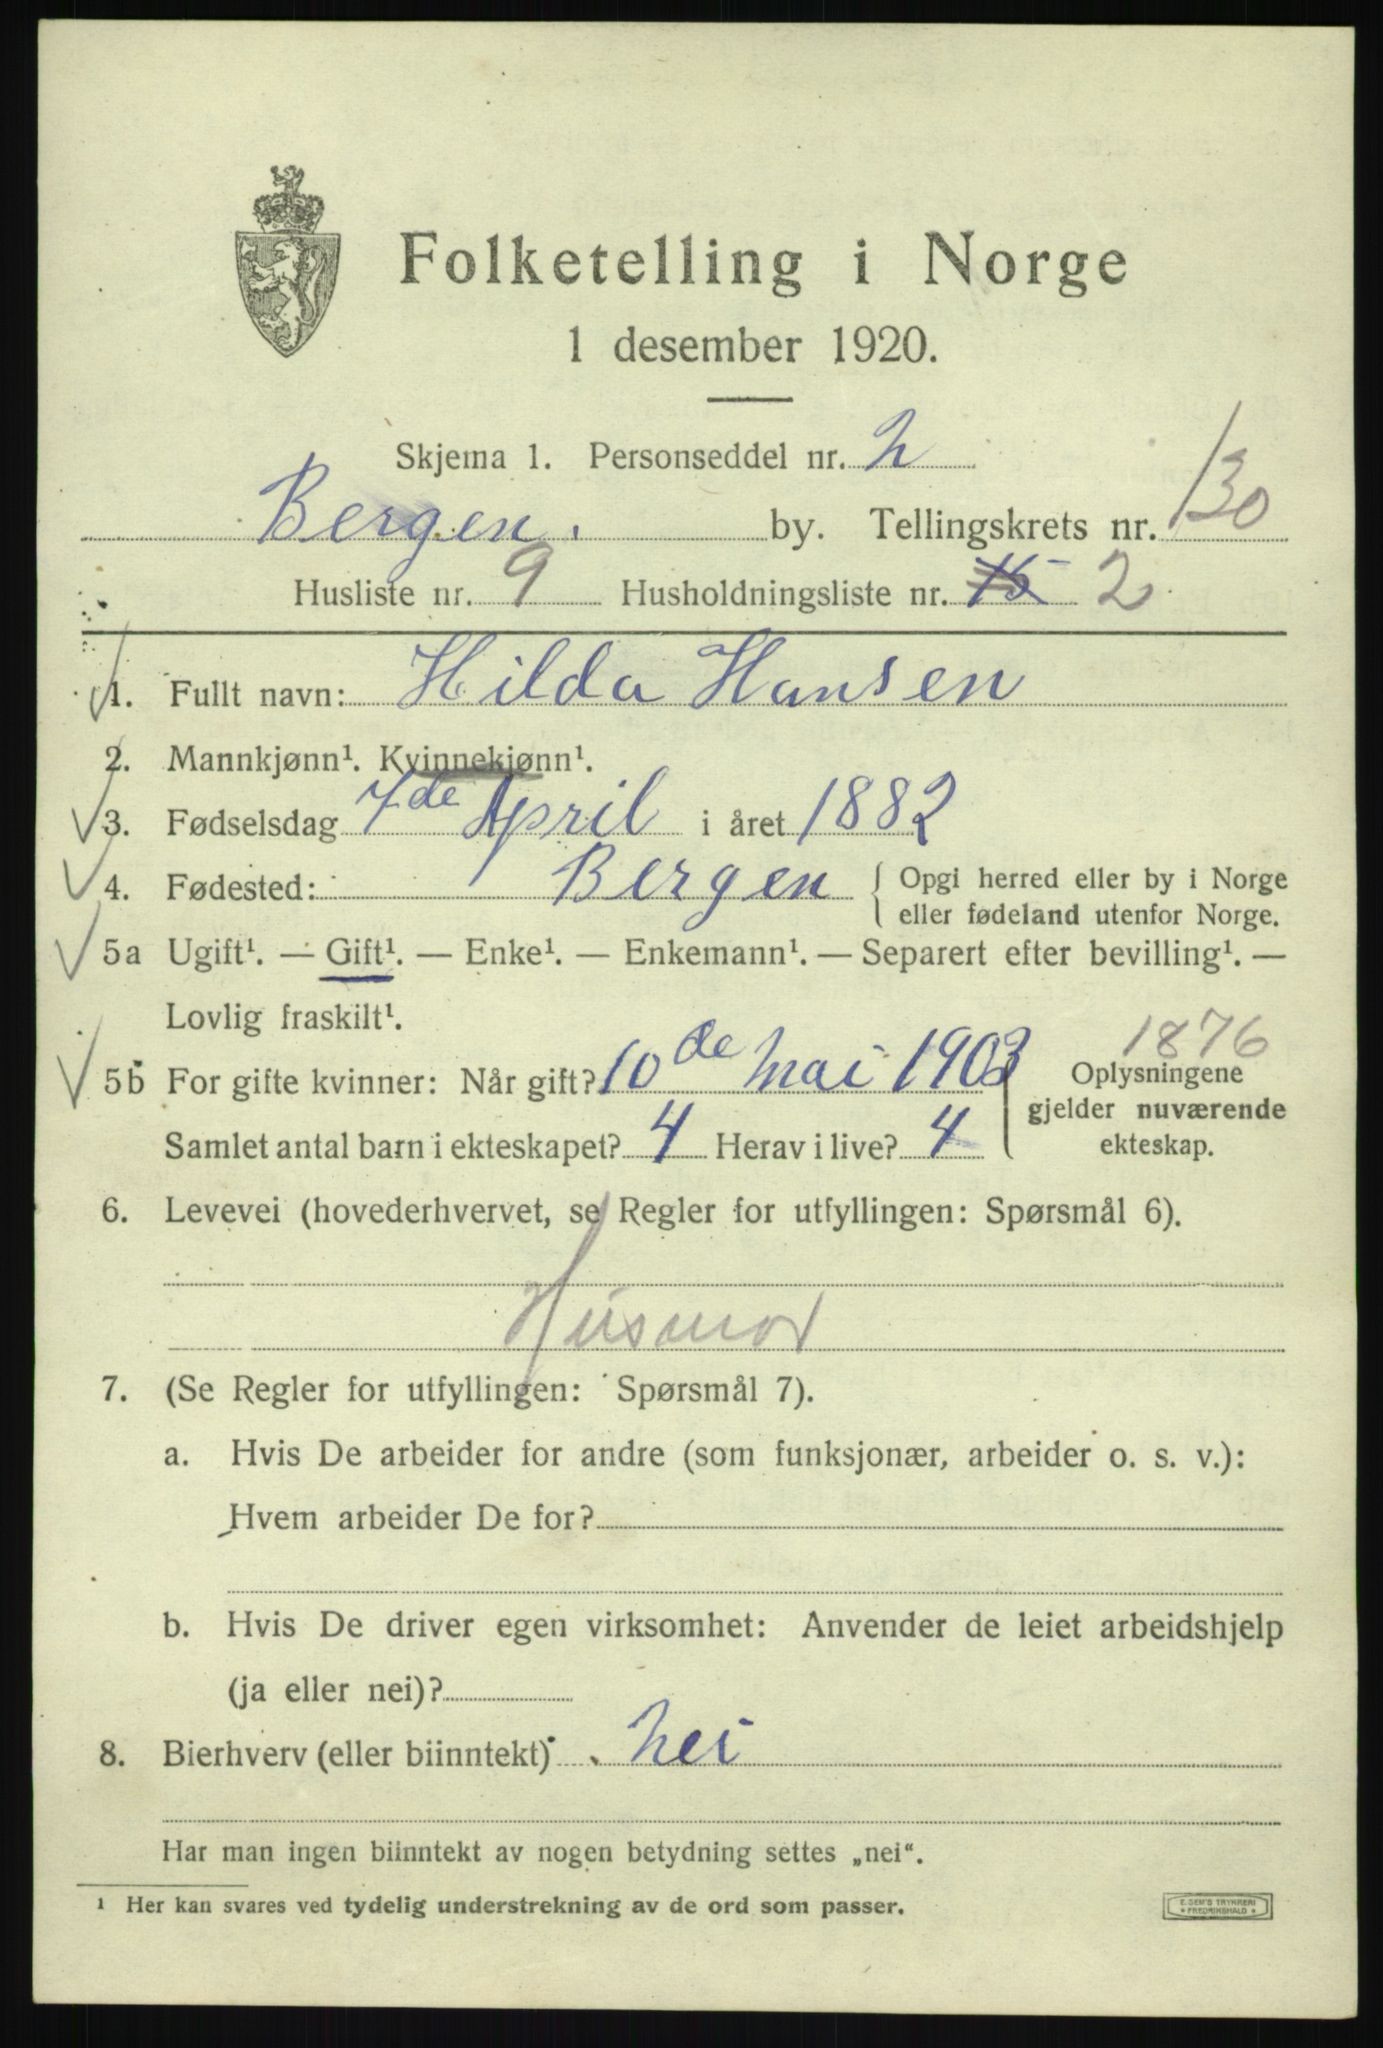 Folketelling i Norge
1 desember 1920.
Skjema 1. Personseddel nr. 2
Bergen. by. Tellingskrets nr. 130
Husliste nr. 9 Husholdningsliste nr. 15 2
1. Fullt navn: Hilda Hansen
2. Mannkjønn¹. Kvinnekjønn¹.
3. Fødselsdag 7de April i året 1882
4. Fødested: Bergen { Opgi herred eller by i Norge
eller fødeland utenfor Norge.
5a Ugift¹. — Gift¹. — Enke¹. — Enkemann¹. — Separert efter bevilling¹. —
Lovlig fraskilt¹.
1876
5b For gifte kvinner: Når gift? 10de Mai 1903 Oplysningene
gjelder nuværende
Samlet antal barn i ekteskapet? 4 Herav i live? 4 ekteskap.
6. Levevei (hovederhvervet, se Regler for utfyllingen: Spørsmål 6).
Husmor
7. (Se Regler for utfyllingen: Spørsmål 7).
a. Hvis De arbeider for andre (som funksjonær, arbeider o. s. v.):
Hvem arbeider De for?
b. Hvis De driver egen virksomhet: Anvender de leiet arbeidshjelp
(ja eller nei)?
8. Bierhverv (eller biinntekt) nei
Har man ingen biinntekt av nogen betydning settes „nei“.
¹ Her kan svares ved tydelig understrekning av de ord som passer.
E. SEM'S TRYKKERI
* FREDRIKSHALD *